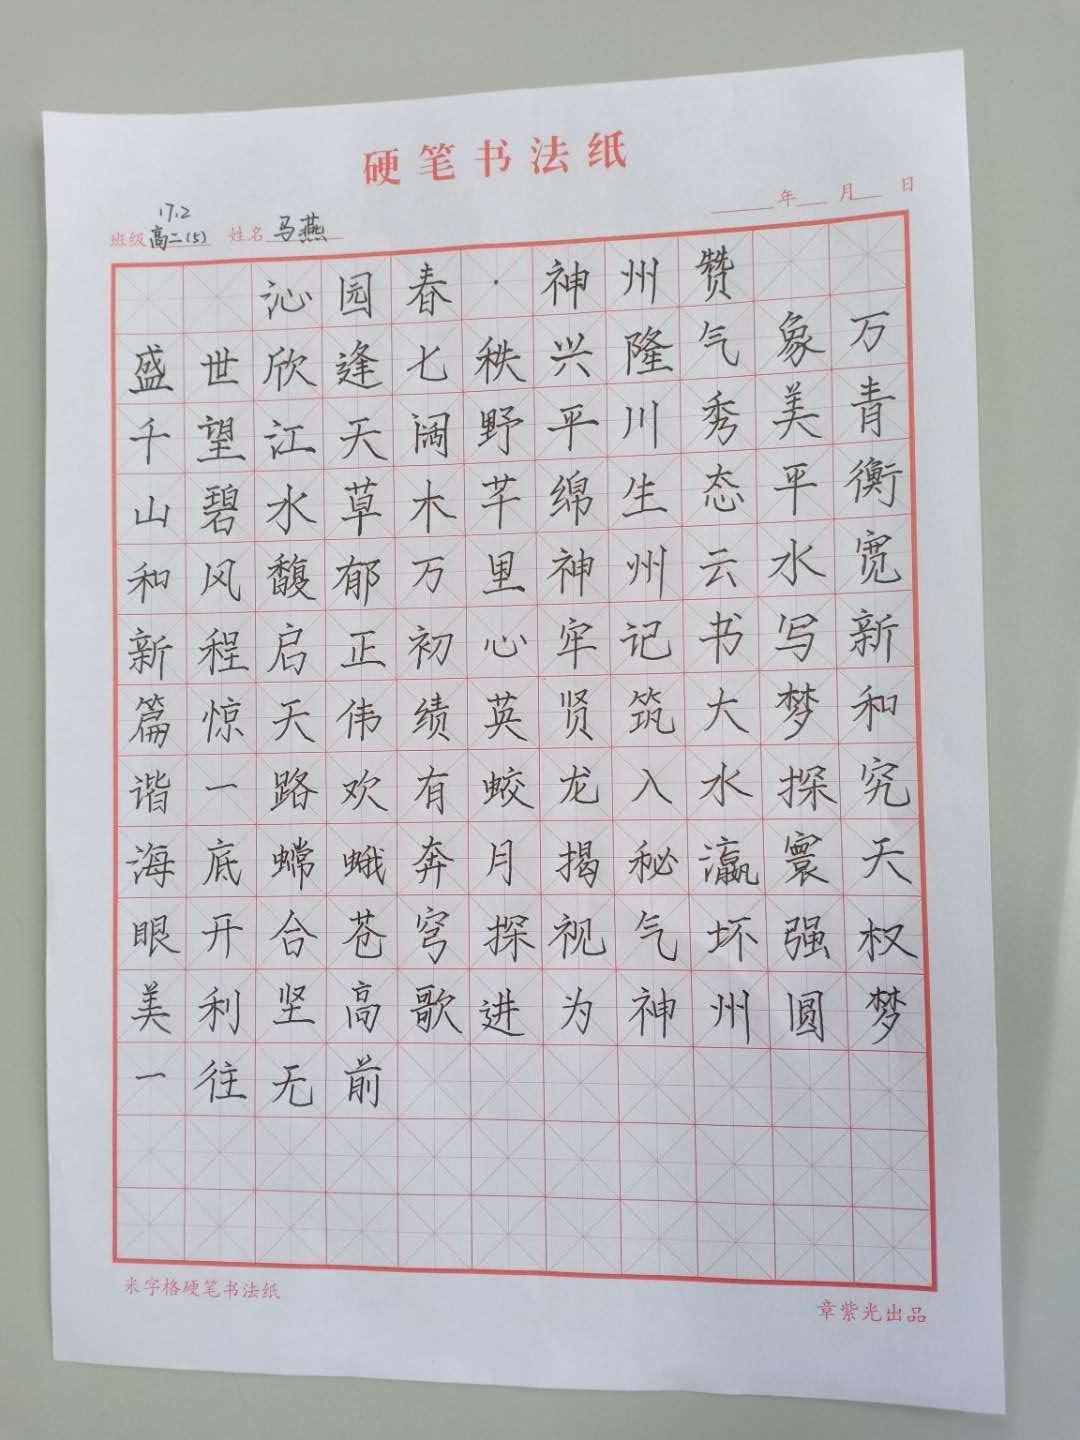 硬笔书法纸
年 月 日
17.2
班级 高二(5) 姓名 马燕
沁园春·神州赞
盛世欣逢七秩兴隆气象万
千望江天阔野平川秀美青
山碧水草木芊绵生态平衡
和风馥郁万里神州云水宽
新程启正初心牢记书写新
篇惊天伟绩英贤筑大梦和
谐一路欢有蛟龙入水探究
海底嫦蛾奔月揭秘瀛寰天
眼开合苍穹探视气坏强权
美利坚高歌进为神州圆梦
一往无前
米字格硬笔书法纸
章紫光出品